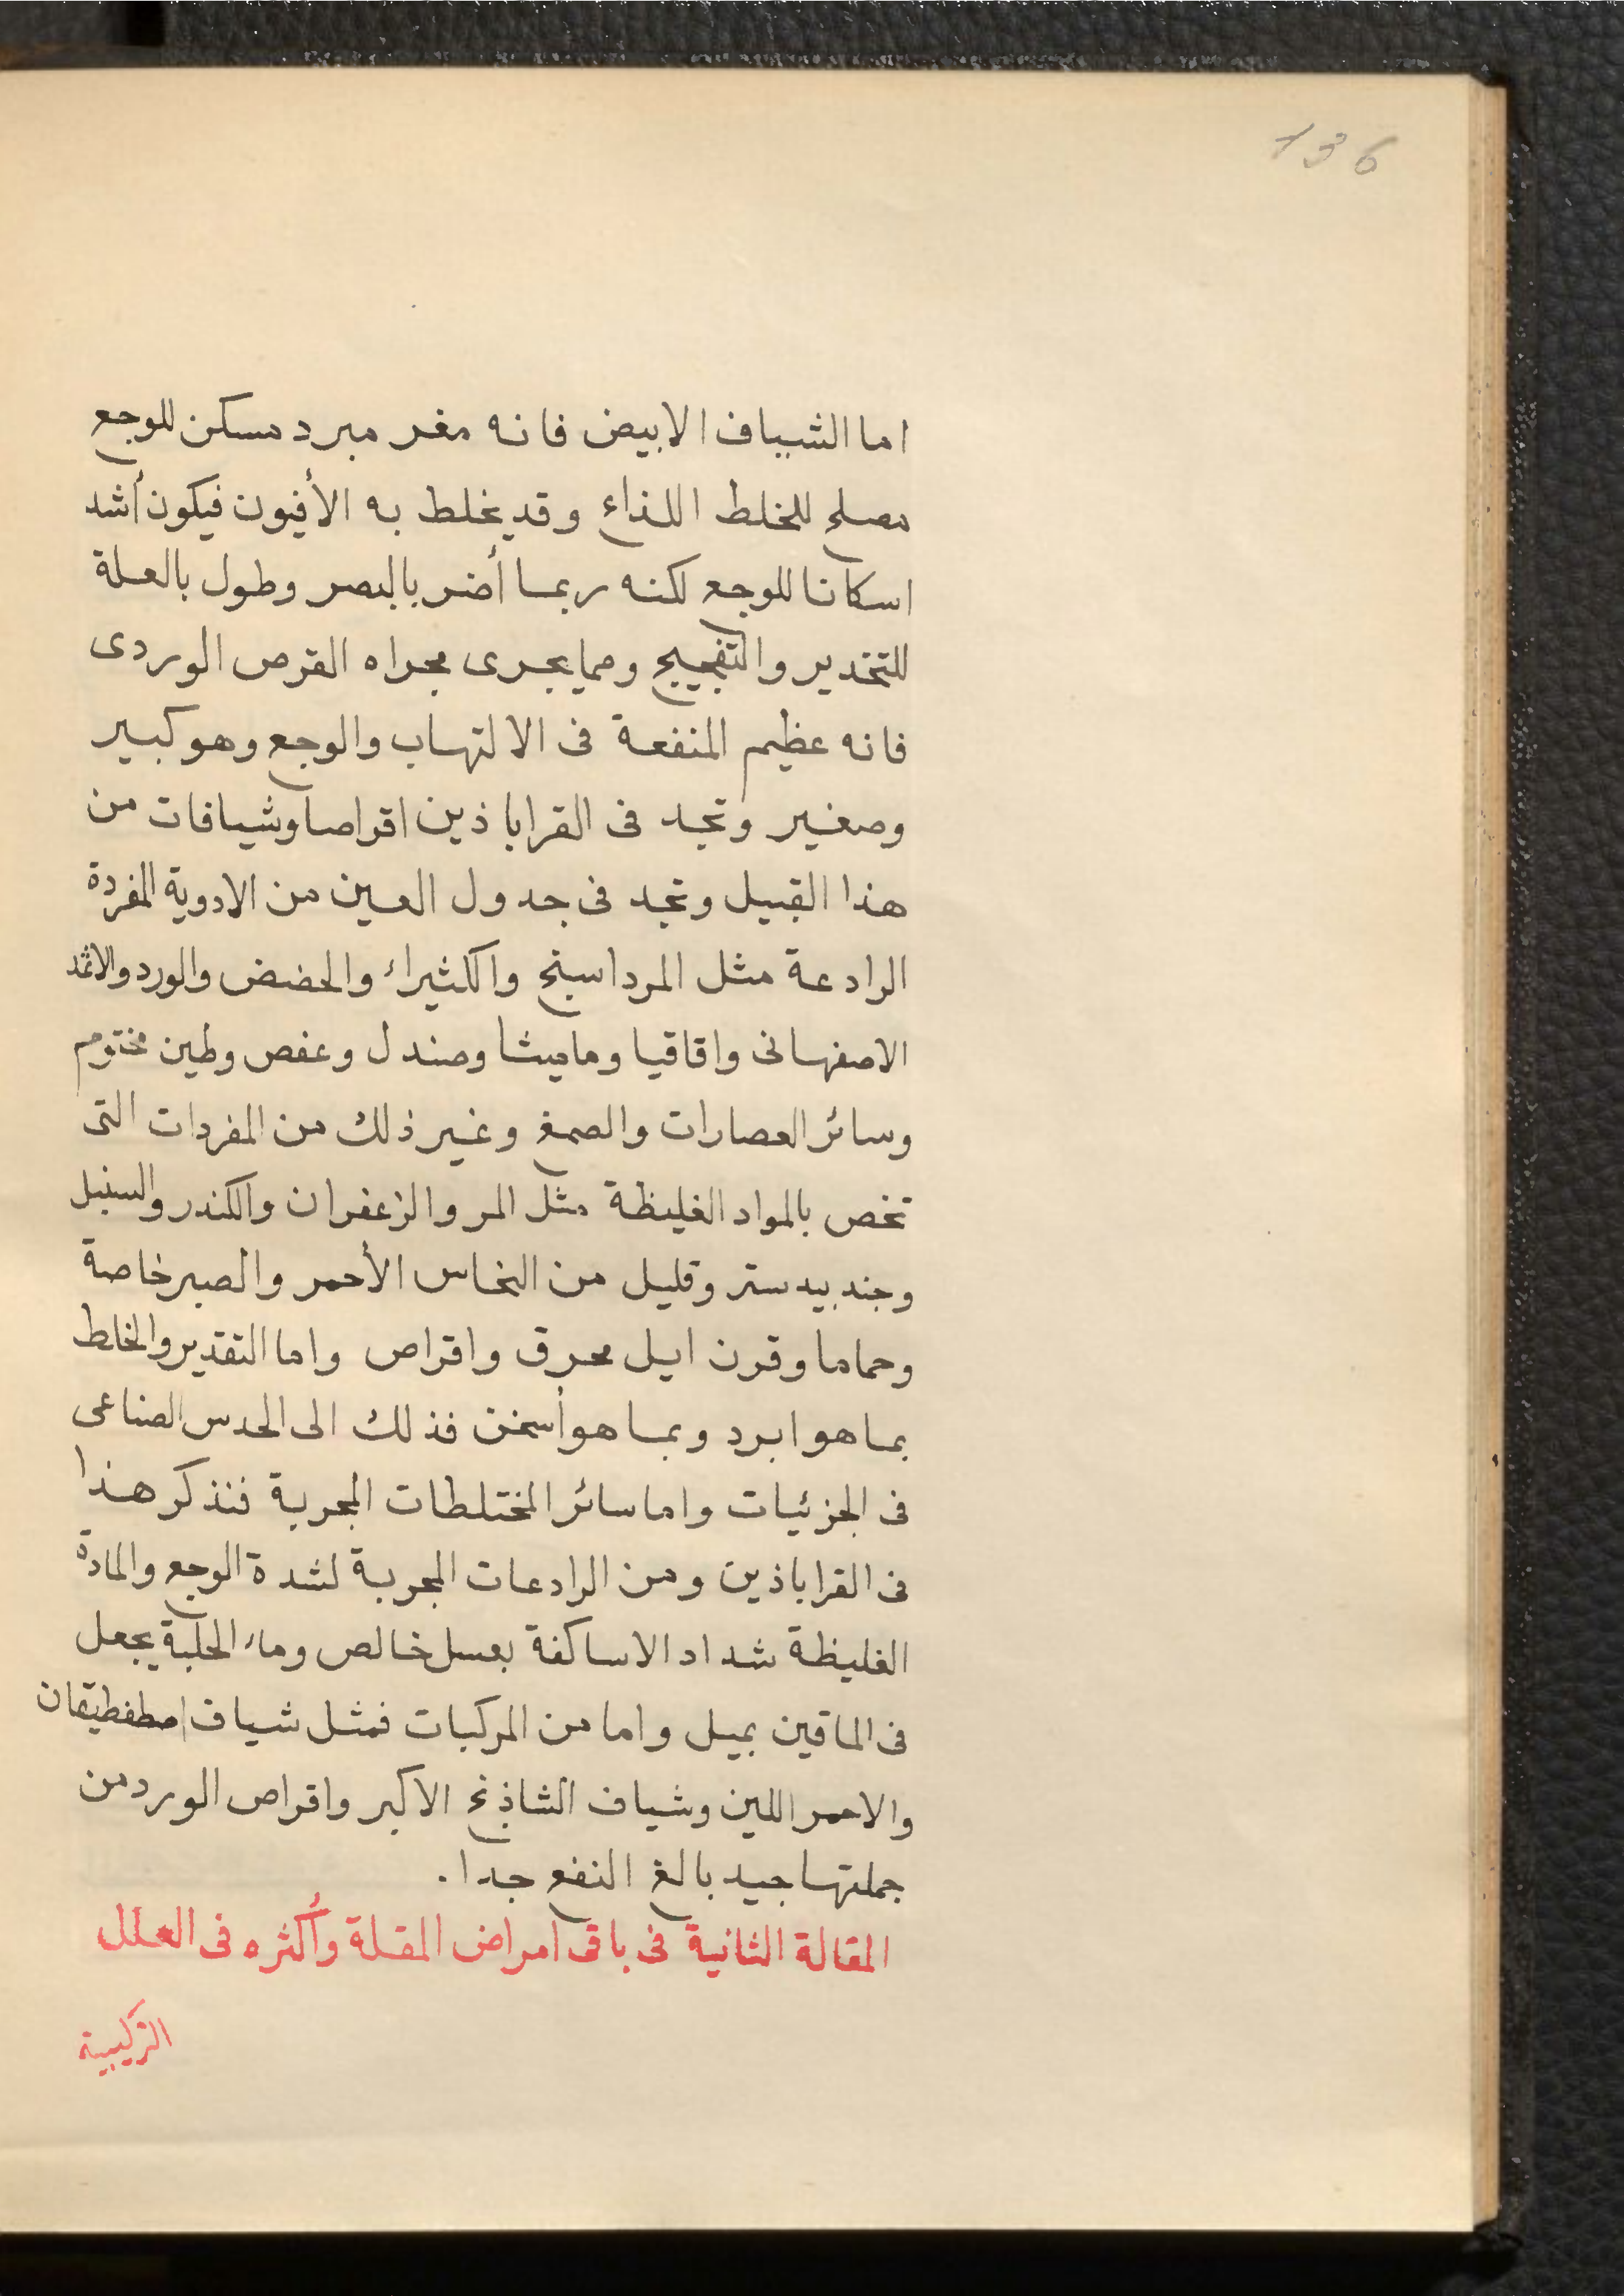 136
اما الشياف الابيض فانه مغر مبرد مسكن للوجع
مصلح للخلط اللذاع وقد يخلط به الأفيون فيكون أشد
اسكانا للوجع لكنه ربما أضر بالبصر وطول بالعلة
للتخدير والتفجيج ومما يجرى مجراه القرص الوردى
فانه عظيم المنفعة فى الالتهاب والوجع وهو كبير
وصغير وتجد فى القراباذين اقراصا وشيافات من
هذا القبيل وتجد فى جدول العين من الادوية المفردة
الرادعة مثل المرداسنج والكثيراء والحضض والورد والاثمد
الاصفهانى واقاقيا وماميثا وصندل وعفص وطين مختوم
وسائر العصارات والصمغ وغير ذلك من المفردات التى
تخص بالمواد الغليظة مثل المر والزعفران والكندر والسنبل
وجندبيدستر وقليل من النحاس الأحمر والصبر خاصة
وحماما وقرن ايل محرق واقراص واما التقدير والخلط
بما هو ابرد وبما هو أسخن فذلك الى الحدس الصناعى
فى الجزئيات واما سائر المختلطات المجربة فنذكر هذا
فى القراباذين ومن الرادعات المجربة لشدة الوجع والمادة
الغليظة شداد الاساكفة بعسل خالص وماء الحلبة يجعل
فى الماقين بميل واما من المركبات فمثل شياف اصطفطيقان
والاحمر اللين وشياف الشاذنج الاكبر واقراص الورد من
جملتها جيد بالغ النفع جدا.
المقالة الثانية فى باقى امراض المقلة وأكثره فى العلل
التركيبية